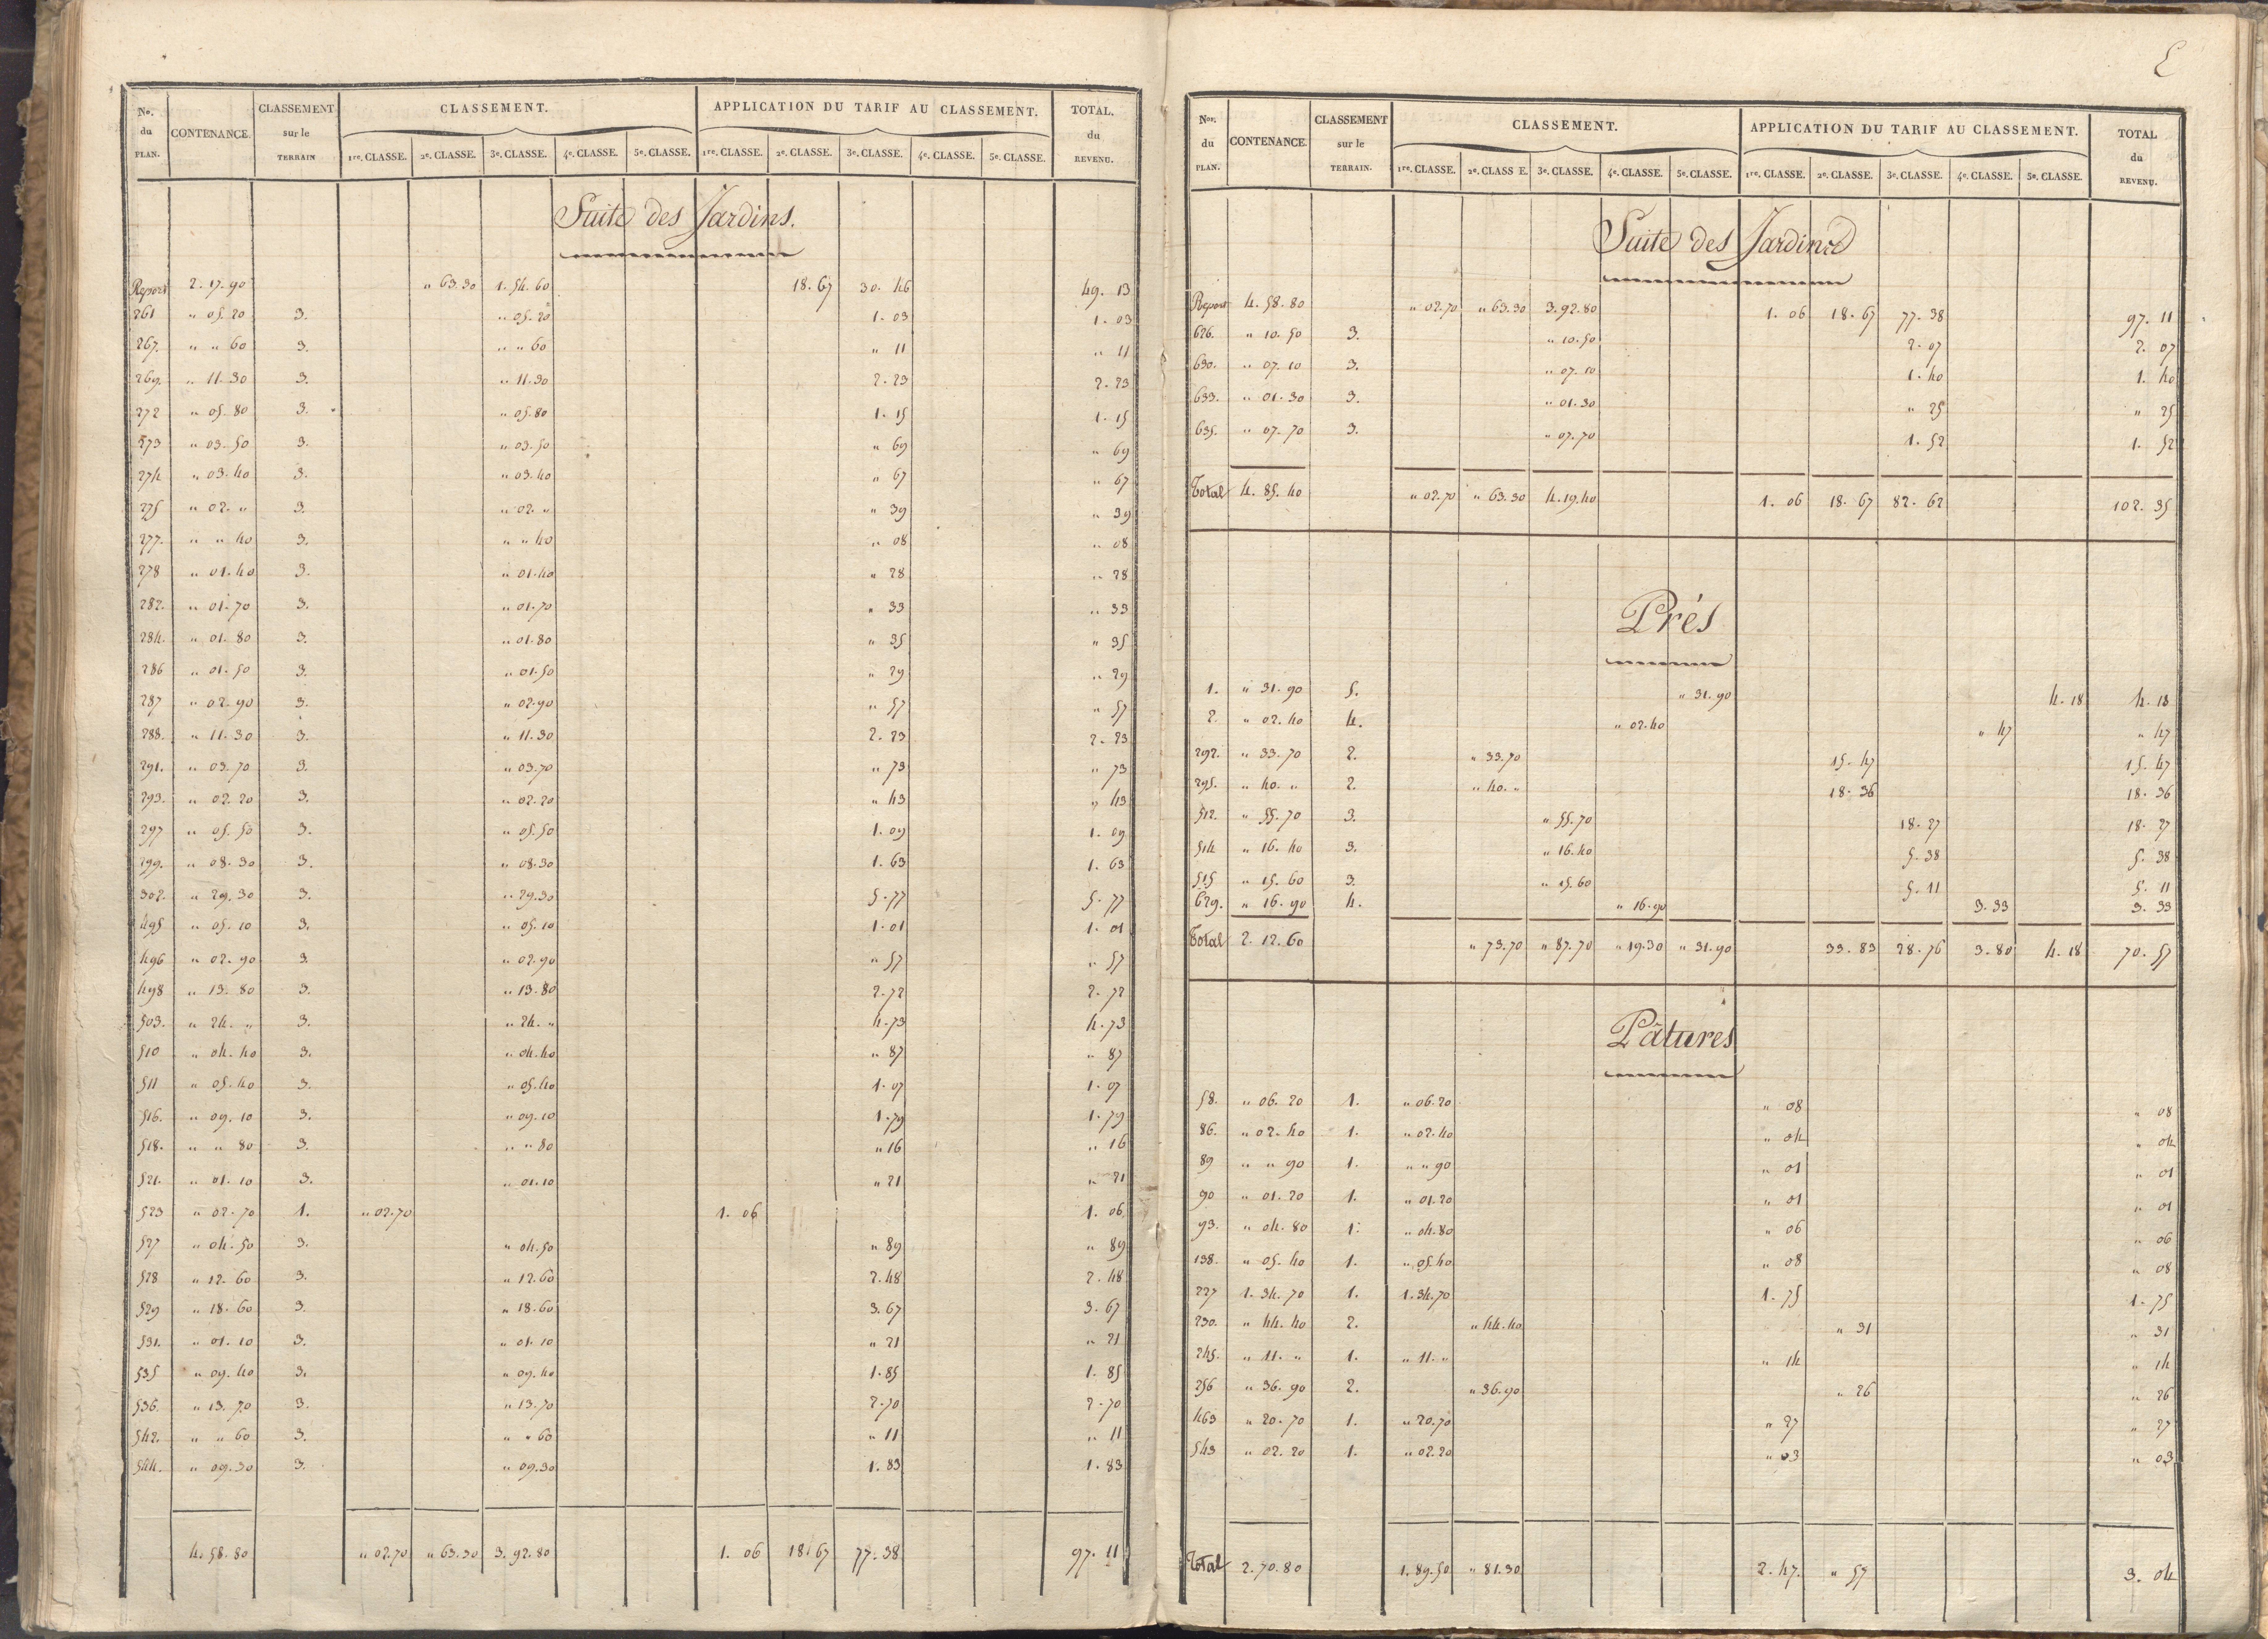 No. du PLAN. CONTENANCE. CLASSEMENT sur le TERRAIN CLASSEMENT. APPLICATION DU TARIF AU CLASSEMENT. TOTAL. du REVENU.
1re. CLASSE. 2e. CLASSE. 3e. CLASSE. 4e. CLASSE. 5e. CLASSE. 1re. CLASSE. 2e. CLASSE. 3e. CLASSE. 4e. CLASSE. 5e. CLASSE.
Suite des Jardins.
Report 2. 17. 90 " 63. 30 1. 54. 60 18. 67 30. 46 49. 13
261 " 05. 20 3. " 05. 20 1. 03 1. 03
267. " " 60 3. " " 60 " 11 " 11
269. " 11. 30 3. " 11. 30 2. 23 2. 23
272 " 05. 80 3. " 05. 80 1. 15 1. 15
273 " 03. 50 3. " 03. 50 " 69 " 69
274 " 03. 40 3. " 03. 40 " 67 " 67
275 " 02. " 3. " 02. " " 39 " 39
277. " " 40 3. " " 40 " 08 " 08
278 " 01. 40 3. " 01. 40 " 28 " 28
282. " 01. 70 3. " 01. 70 " 33 " 33
284. " 01. 80 3. " 01. 80 " 35 " 35
286 " 01. 50 3. " 01. 50 " 29 " 29
287 " 02. 90 3. " 02. 90 " 57 " 57
288. " 11. 30 3. " 11. 30 2. 23 2. 23
291. " 03. 70 3. " 03. 70 " 73 " 73
293. " 02. 20 3. " 02. 20 " 43 " 43
297 " 05. 50 3. " 05. 50 1. 09 1. 09
299. " 08. 30 3. " 08. 30 1. 63 1. 63
302. " 29. 30 3. " 29. 30 5. 77 5. 77
495 " 05. 10 3. " 05. 10 1. 01 1. 01
496 " 02. 90 3. " 02. 90 " 57 " 57
498 " 13. 80 3. " 13. 80 2. 72 2. 72
503. " 24. " 3. " 24. " 4. 73 4. 73
510 " 04. 40 3. " 04. 40 " 87 " 87
511 " 05. 40 3. " 05. 40 1. 07 1. 07
516. " 09. 10 3. " 09. 10 1. 79 1. 79
518. " " 80 3. " " 80 " 16 " 16
521. " 01. 10 3. " 01. 10 " 21 " 21
523 " 02. 70 1. " 02. 70 1. 06 1. 06
527 " 04. 50 3. " 04. 50 " 89 " 89
528 " 12. 60 3. " 12. 60 2. 48 2. 48
529 " 18. 60 3. " 18. 60 3. 67 3. 67
531. " 01. 10 3. " 01. 10 " 21 " 21
535 " 09. 40 3. " 09. 40 1. 85 1. 85
536. " 13. 70 3. " 13. 70 2. 70 2. 70
542. " " 60 3. " " 60 " 11 " 11
544. " 09. 30 3. " 09. 30 1. 83 1. 83
4. 58. 80 " 02. 70 " 63. 30 3. 92. 80 1. 06 18. 67 77. 38 97. 11
Nos. du PLAN. CONTENANCE. CLASSEMENT sur le TERRAIN. CLASSEMENT. APPLICATION DU TARIF AU CLASSEMENT. TOTAL du REVENU.
1re. CLASSE. 2e. CLASS E. 3e. CLASSE. 4e. CLASSE. 5e. CLASSE. 1re. CLASSE. 2e. CLASSE. 3e. CLASSE. 4e. CLASSE. 5e. CLASSE.
Suite des Jardins
Report 4. 58. 80 " 02. 70 " 63. 30 3. 92. 80 1. 06 18. 67 77. 38 97. 11
626. " 10. 50 3. " 10. 50 2. 07 2. 07
630. " 07. 10 3. " 07. 10 1. 40 1. 40
633. " 01. 30 3. " 01. 30 " 25 " 25
635. " 07. 70 3. " 07. 70 1. 52 1. 52
Total 4. 85. 40 " 02. 70 " 63. 30 4. 19. 40 1. 06 18. 67 82. 62 102. 35
Prés
1. " 31. 90 5. " 31. 90 4. 18 4. 18
2. " 02. 40 4. " 02. 40 " 47 " 47
292. " 33. 70 2. " 33. 70 15. 47 15. 47
295. " 40. " 2. " 40. " 18. 36 18. 36
512. " 55. 70 3. " 55. 70 18. 27 18. 27
514 " 16. 40 3. " 16. 40 5. 38 5. 38
515 " 15. 60 3. " 15. 60 5. 11 5. 11
629. " 16. 90 4. " 16. 90 3. 33 3. 33
Total 2. 12. 60 " 73. 70 " 87. 70 " 19. 30 " 31. 90 33. 83 28. 76 3. 80 4. 18 70. 57
Pâtures
58. " 06. 20 1. " 06. 20 " 08 " 08
86. " 02. 40 1. " 02. 40 " 04 " 04
89 " " 90 1. " " 90 " 01 " 01
90 " 01. 20 1. " 01. 20 " 01 " 01
93. " 04. 80 1. " 04. 80 " 06 " 06
138. " 05. 40 1. " 05. 40 " 08 " 08
227 1. 34. 70 1. 1. 34. 70 1. 75 1. 75
230. " 44. 40 2. " 44. 40 " 31 " 31
245. " 11. " 1. " 11. " " 14 " 14
256 " 36. 90 2. " 36. 90 " 26 " 26
463 " 20. 70 1. " 20. 70 " 27 " 27
543 " 02. 20 1. " 02. 20 " 03 " 03
Total 2. 70. 80 1. 89. 50 " 81. 30 2. 47. " 57 3. 04